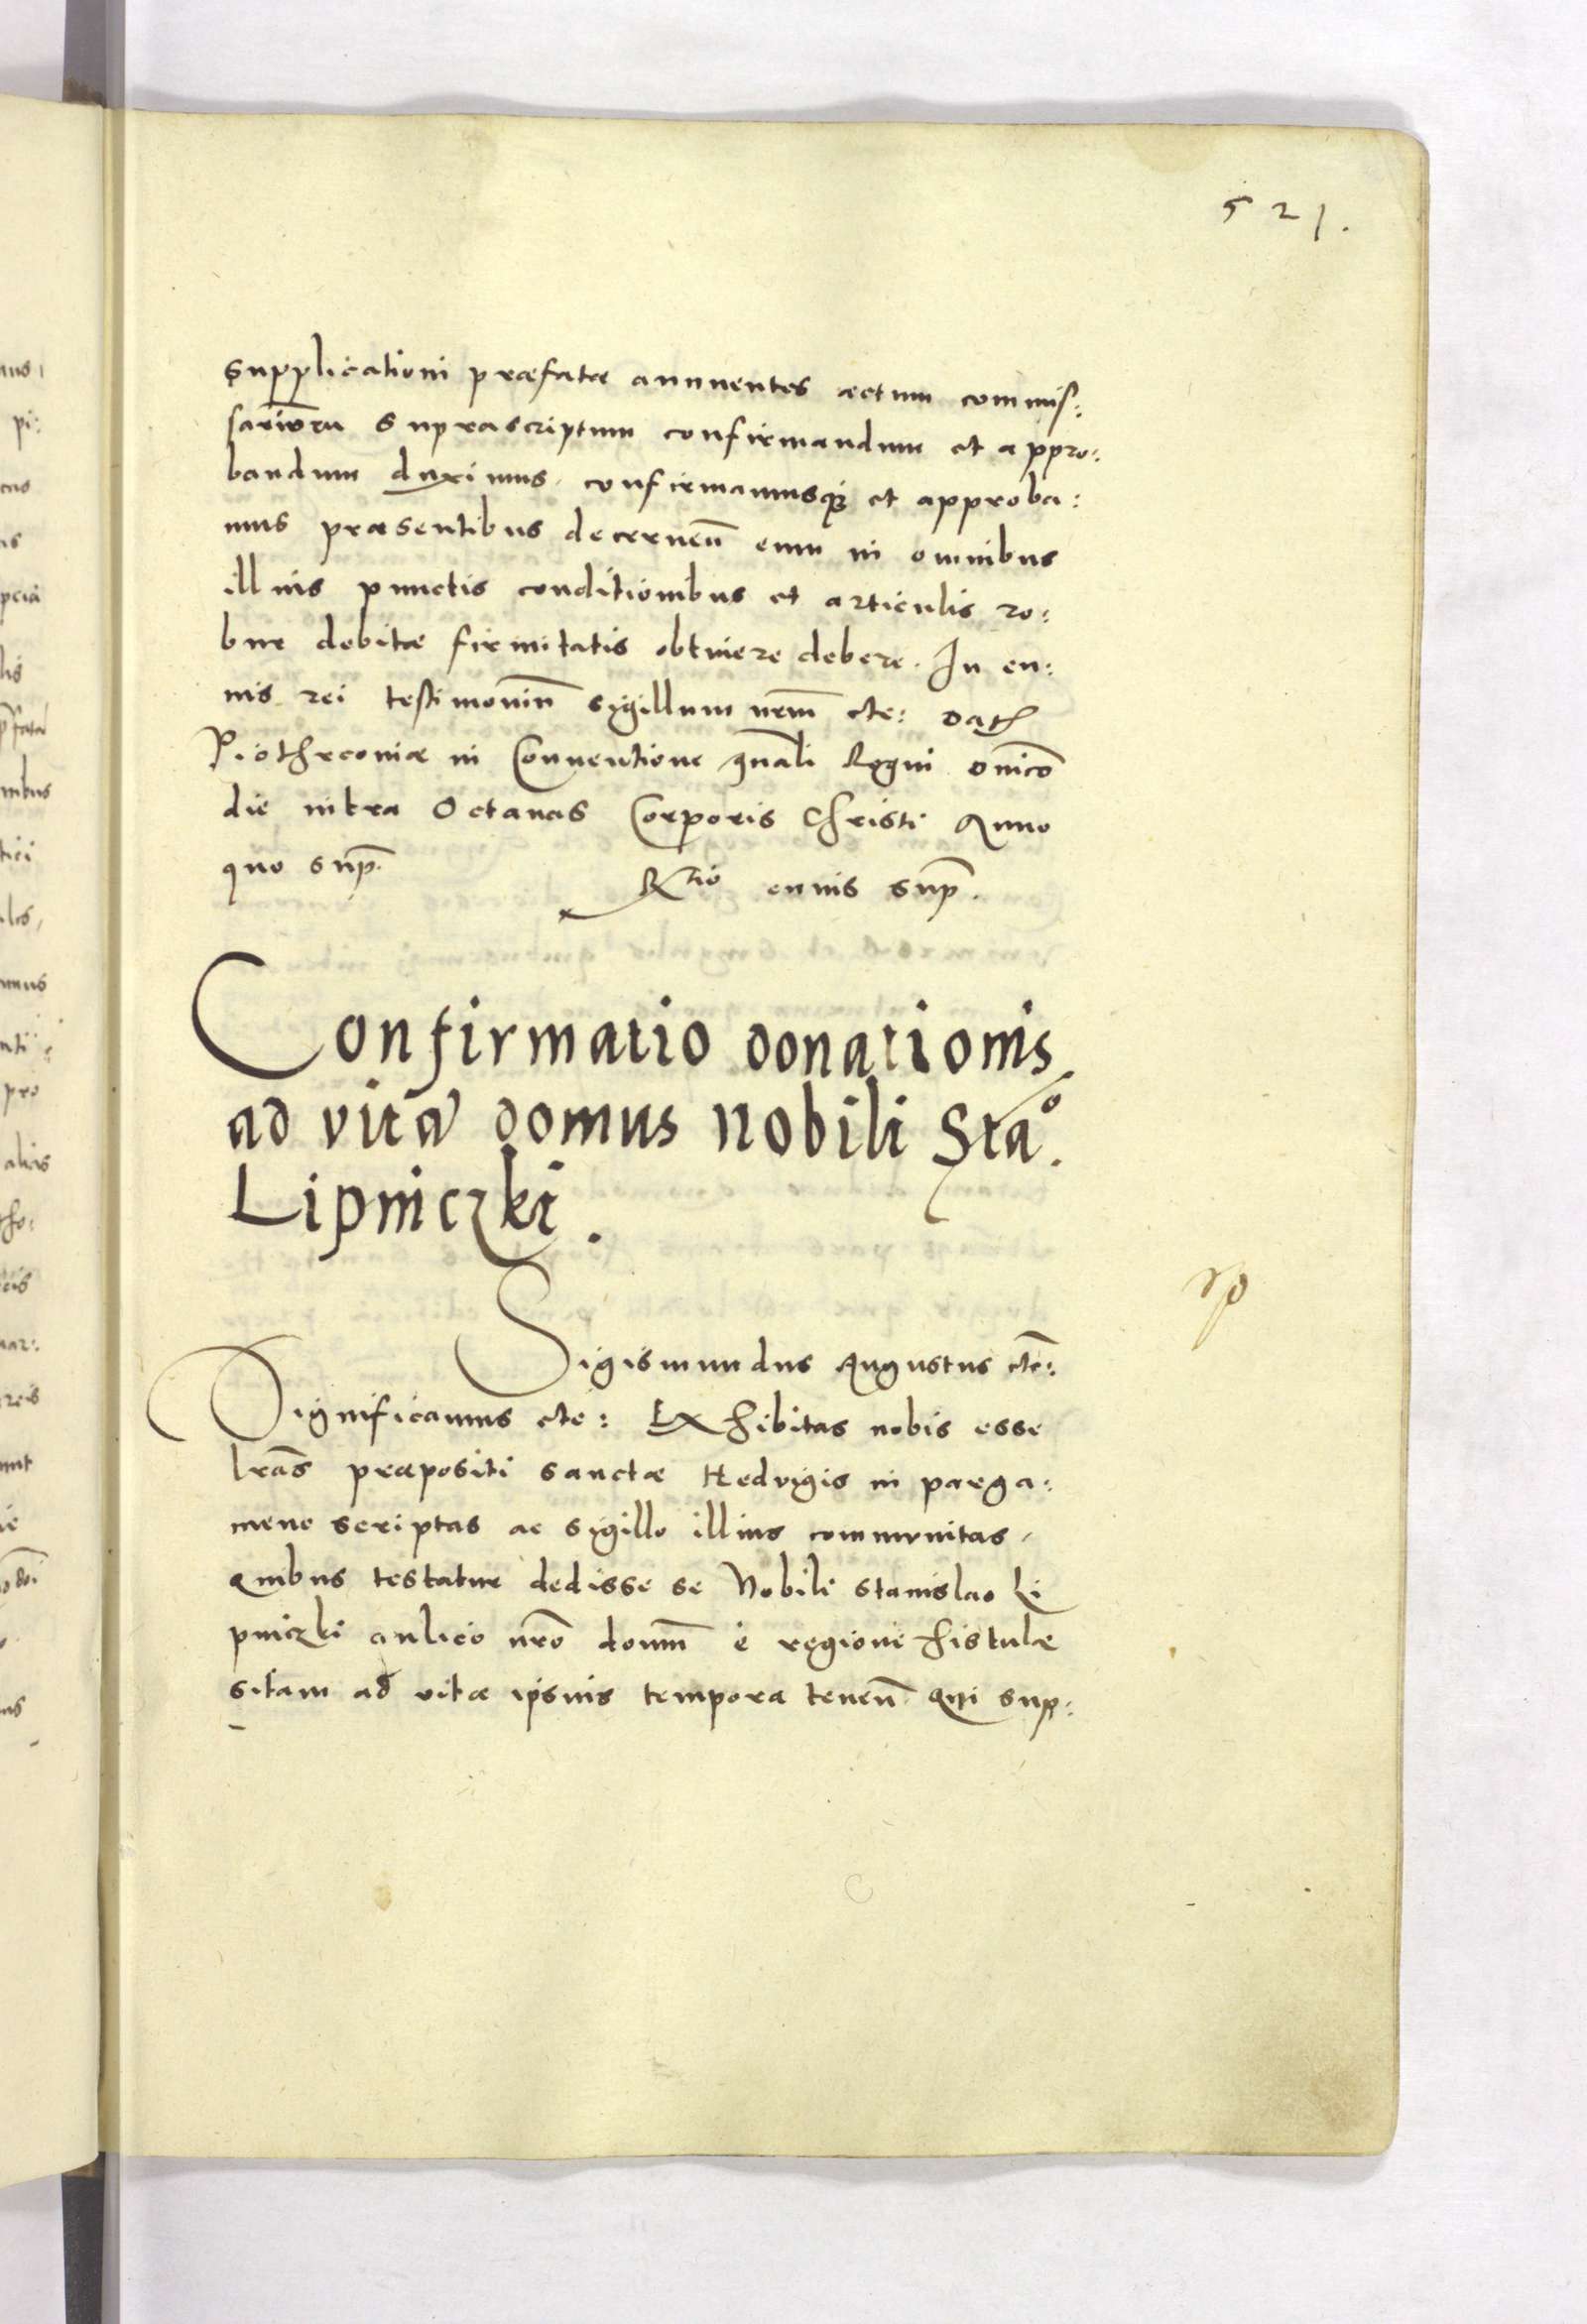 521.
supplicationi præfatæ annuentes actum commis:
sariorũ suprascriptum confirmandum et appro:
bandum duximus. confirmamusq; et approba:
mus præsentibus decerneñ eum in omnibus
illius punctis conditionibus et articulis ro:
bur debitæ firmitatis obtinere debere. In cu:
ius rei testimoniũ sigillum nrm̃ etc: Dat
Piothrconiæ in Conventione gnãli Regni Dnico
die infra Octavas Corporis Christi Anno
quo sup̃.
Rtio cuius sup̃.
Confirmatio donationis
ad vitã domus nobili Stao.
Lipniczki.
Sigismundus Augustus etc:
Significamus etc: Exhibitas nobis esse
lrãs præpositi sanctæ Hedvigis in parga:
meno scriptas ac sigillo illius communitas,
Quibus testatur dedisse se Nobili Stanislao Li
pniczki aulico nrõ domũ e regione fistulæ
sitam ad vitæ ipsius tempora teneñ. Qui sup: